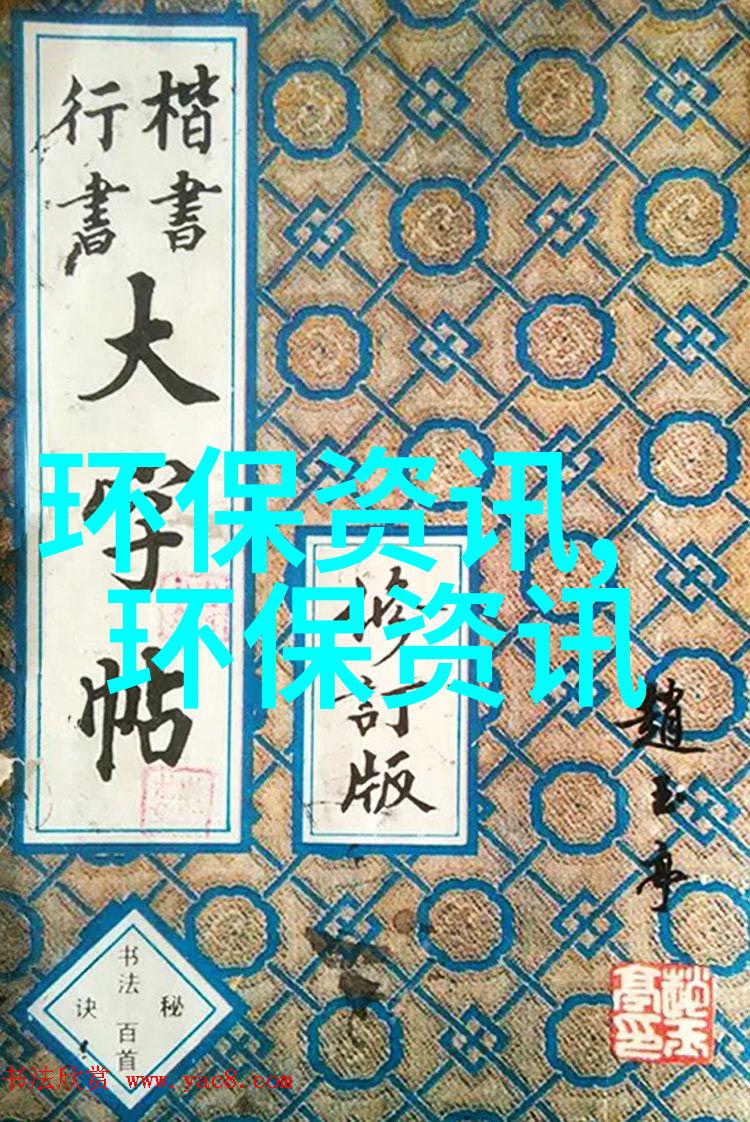 楷書
行書
大字帖
环保资讯,
环保资讯
修訂版
趙玉亭
书法
百首
秘
诀
书法欣赏 www.yac8.com